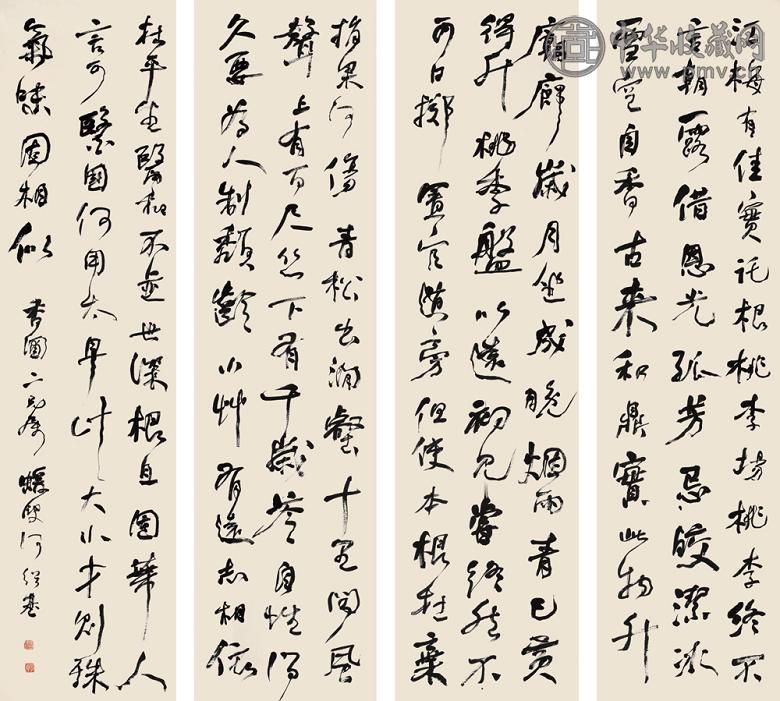 江梅有佳實託根桃李場桃李終不
言朝露借恩光孤芳忌皎潔冰
雪空自香古來和鼎實此物升
廟廊歲月坐成晚烟雨青已黃
得升桃李盤以遠初見嘗終然不
可口擲置官道旁但使本根在棄
捐果何傷青松出澗壑十里聞風
聲上有百尺絲下有千歲苓自性得
久要為人制頹齡小艸有遠志相依
在平生醫和不並世深根且固蒂人
言可醫國何用太早計大小才則殊
氣味固相似 香圃二兄屬 蝯叟何紹基
中华收藏网
www.pmv.cn